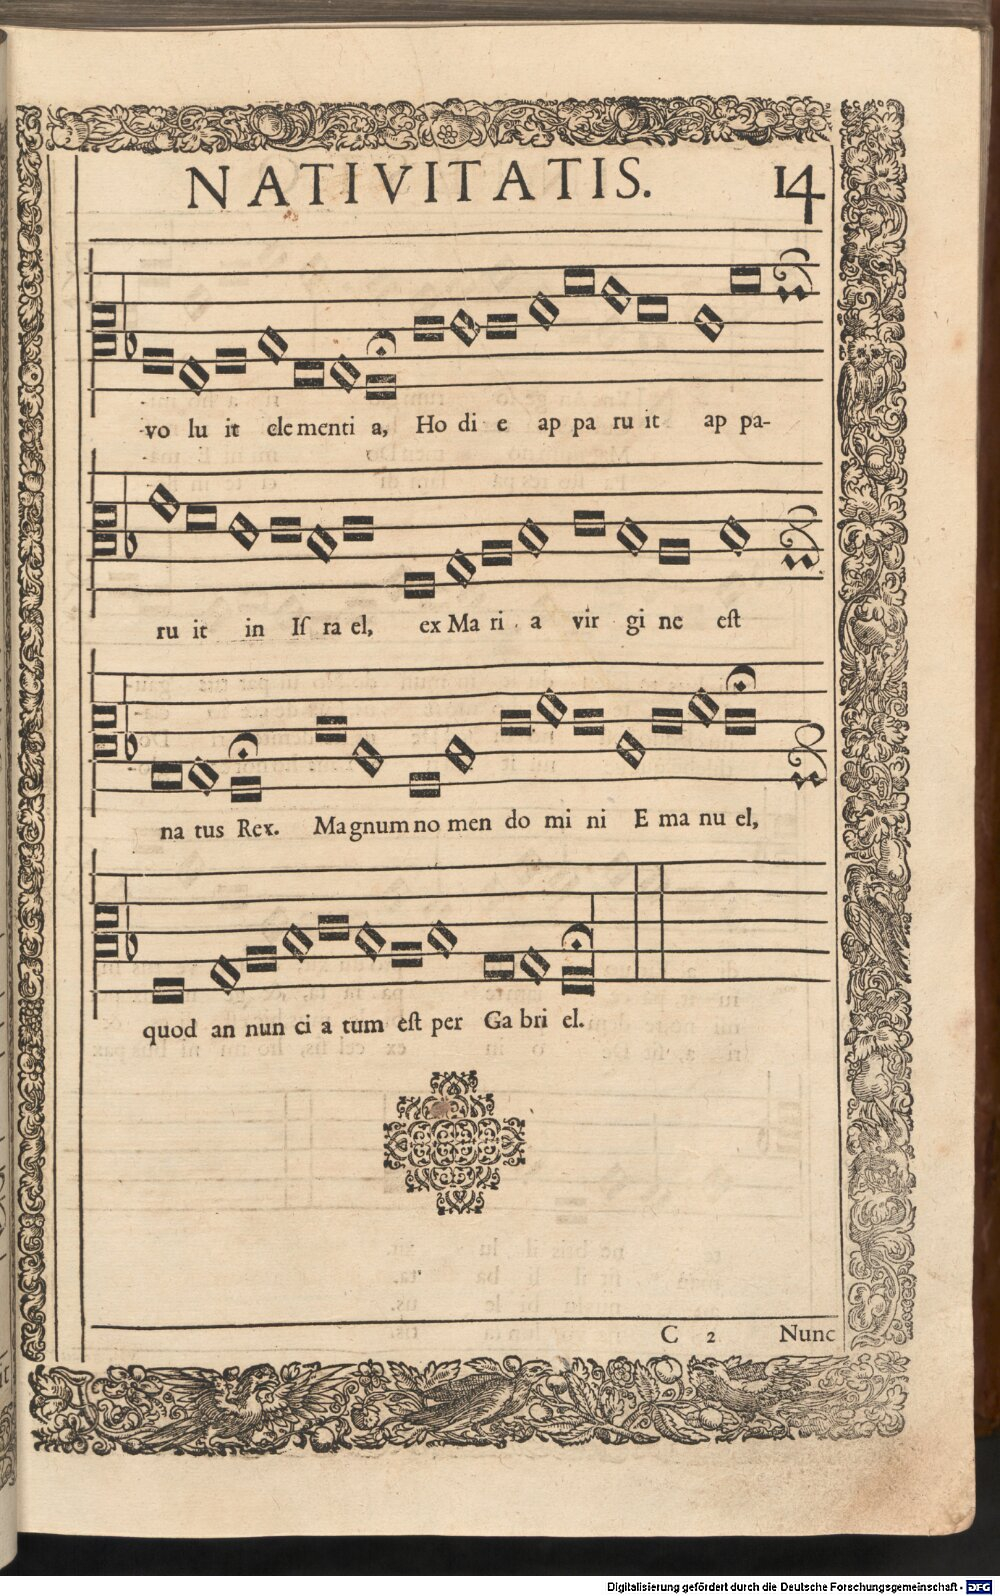 NATIVITATIS. 14
vo lu it clementi a, Ho di e ap pa ru it ap pa-
ru it in Iſ ra el, ex Ma ri a vir gi ne eſt
na tus Rex. Magnum no men do mi ni E ma nu el,
quod an nun ci a tum eſt per Ga bri el.
C 2 Nunc
Digitalisierung gefördert durch die Deutsche Forschungsgemeinschaft - DFG